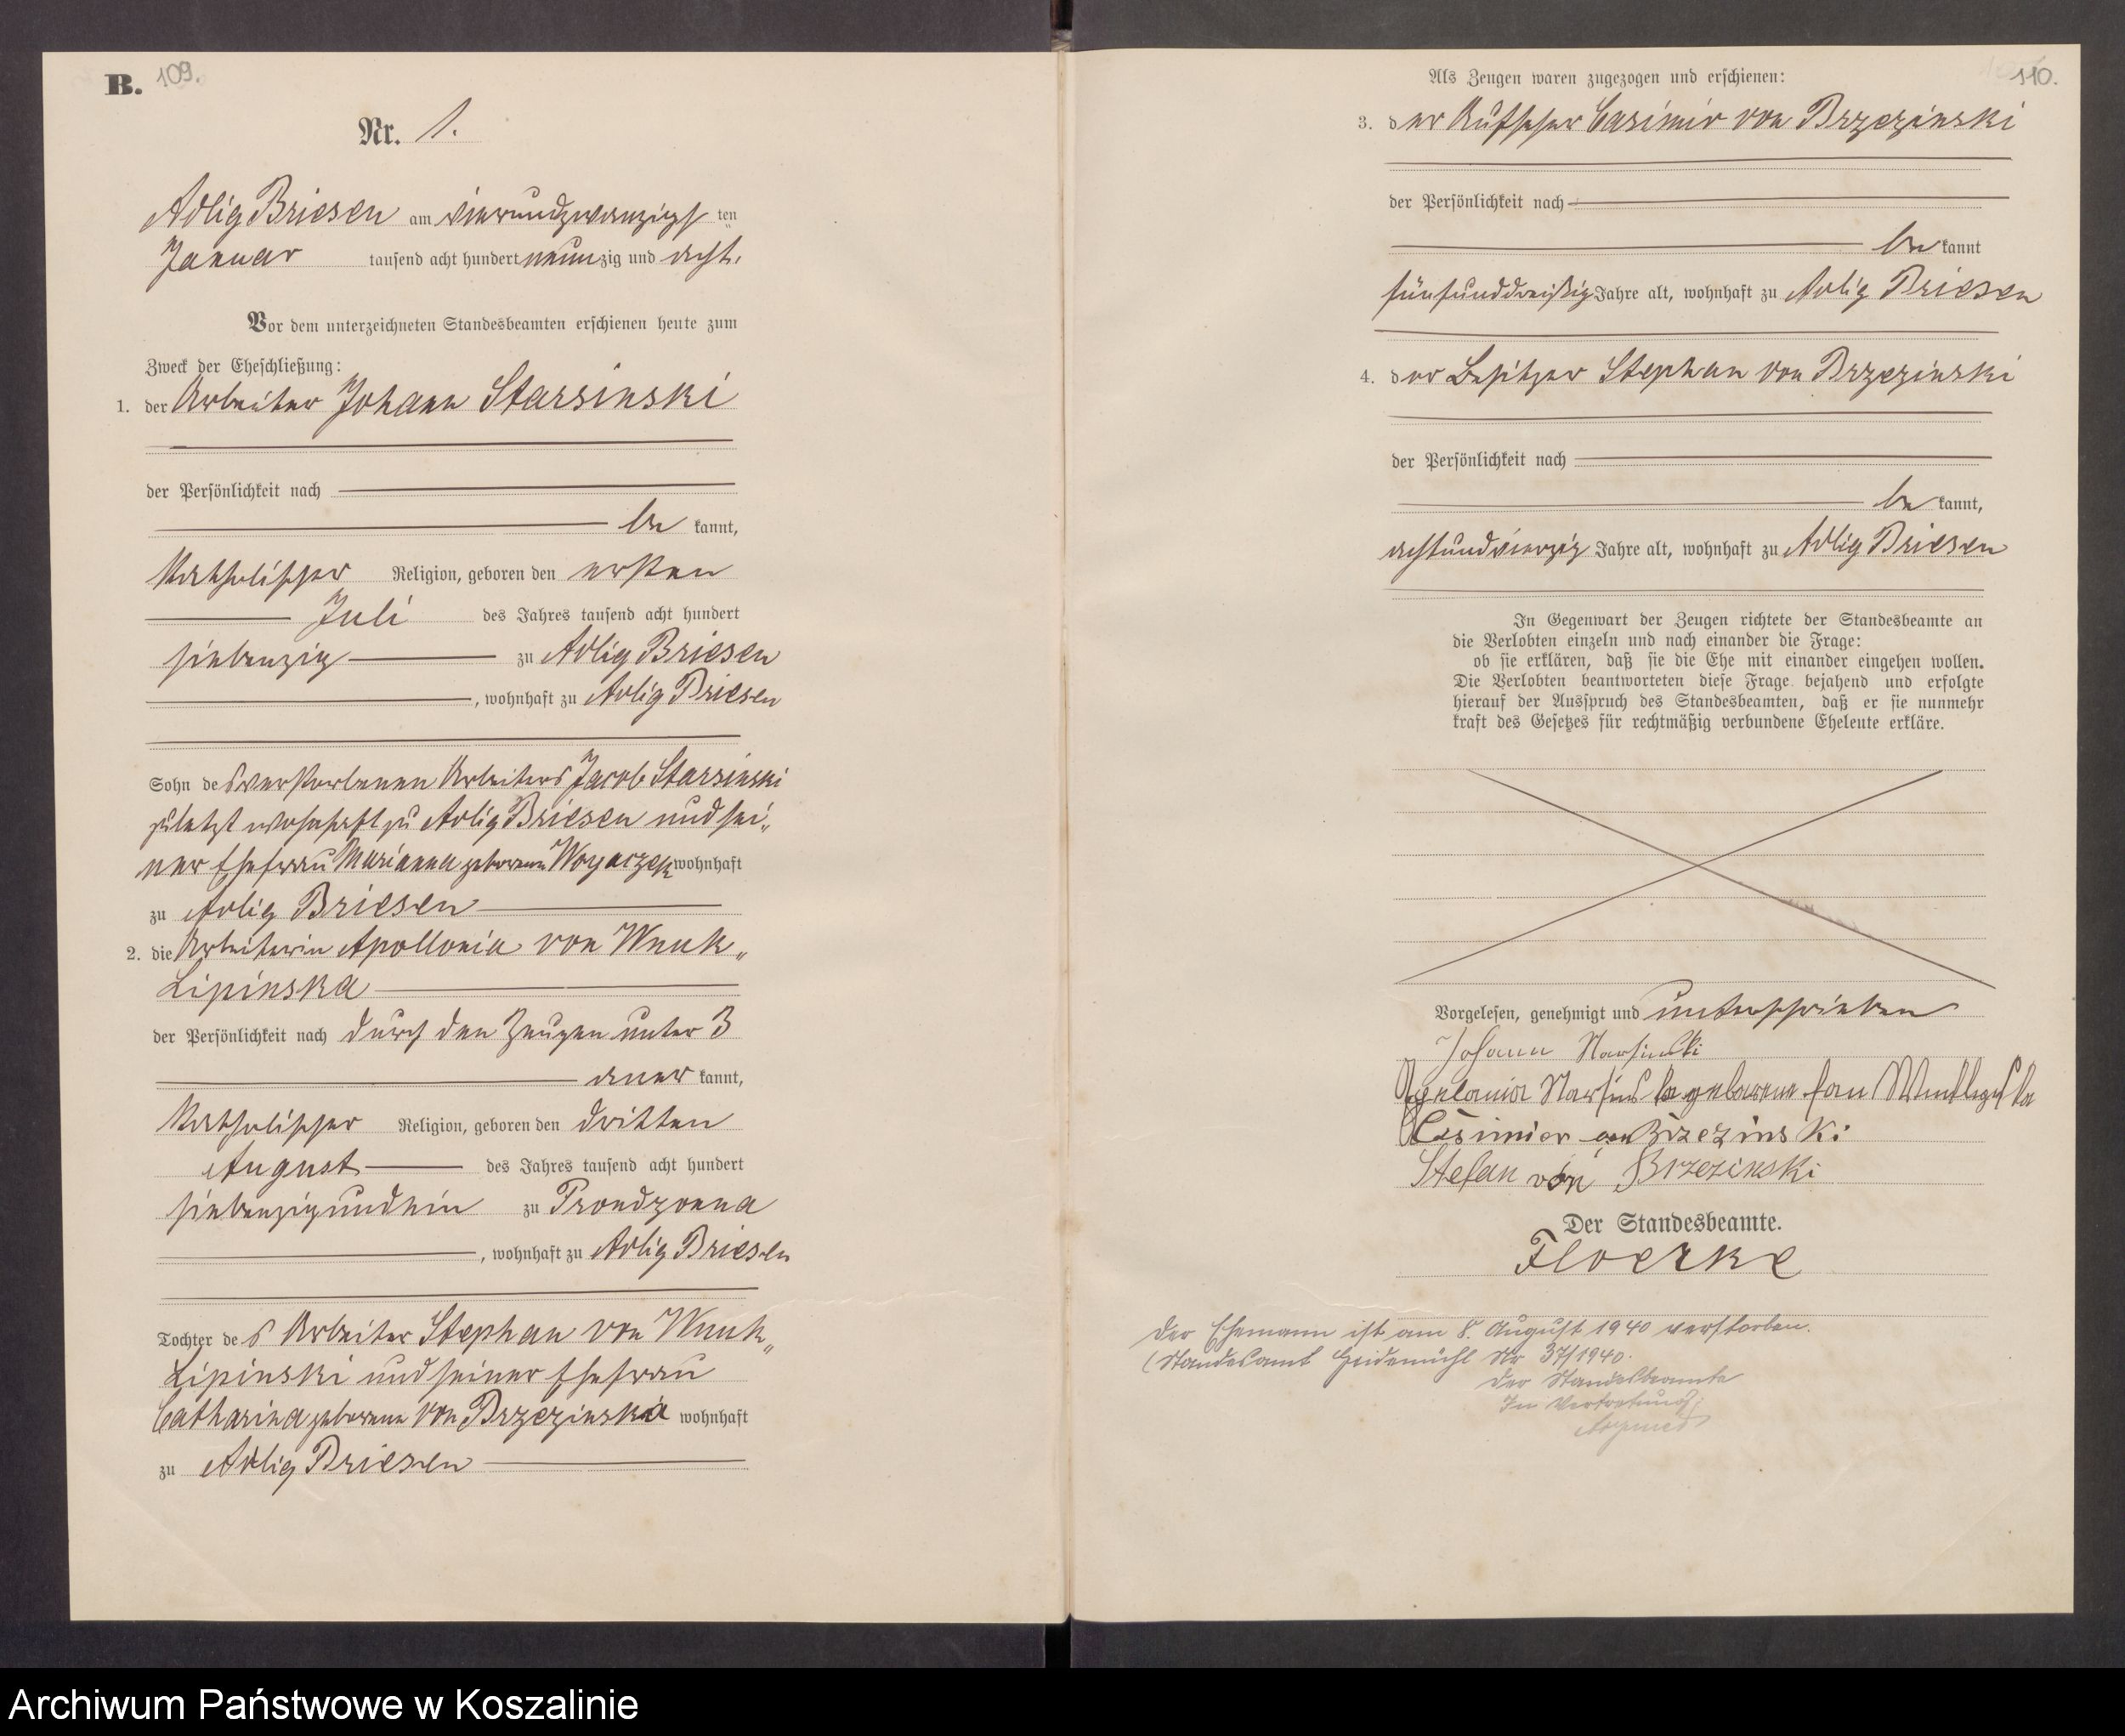 B. 109.
Nr. 1.
Adlig Briesen am vierundzwanzigs ten
Januar tausend acht hundert neunzig und acht.
Vor dem unterzeichneten Standesbeamten erschienen heute zum
Zweck der Eheschließung:
1. der Arbeiter Johann Starsinski
der Persönlichkeit nach
be kannt,
katholischer Religion, geboren den ersten
Juli des Jahres tausend acht hundert
siebenzig zu Adlig Briesen
, wohnhaft zu Adlig Briesen
Sohn des verstorbenen Arbeiters Jacob Starsinski
zuletzt wohnhaft zu Adlig Briesen und sei„
ner Ehefrau Marianna geborene Woyaczek wohnhaft
zu Adlig Briesen
2. die Arbeiterin Apollonia von Wnuk„
Lipinska
der Persönlichkeit nach durch den Zeugen unter 3
aner kannt,
katholischer Religion, geboren den dritten
August des Jahres tausend acht hundert
siebenzigundein zu Prondzonna
, wohnhaft zu Adlig Briesen
Tochter des Arbeiter Stephan von Wnuk„
Lipinski und seiner Ehefrau
Catharina geborene von Brzezinska wohnhaft
zu Adlig Briesen
110.
Als Zeugen waren zugezogen und erschienen:
3. der Aufseher Casimir von Brzezinski
der Persönlichkeit nach
be kannt
fünfunddreißig Jahre alt, wohnhaft zu Adlig Briesen
4. der Besitzer Stephan von Brzezinski
der Persönlichkeit nach
be kannt,
achtundvierzig Jahre alt, wohnhaft zu Adlig Briesen
In Gegenwart der Zeugen richtete der Standesbeamte an
die Verlobten einzeln und nach einander die Frage:
ob sie erklären, daß sie die Ehe mit einander eingehen wollen.
Die Verlobten beantworteten diese Frage bejahend und erfolgte
hierauf der Ausspruch des Standesbeamten, daß er sie nunmehr
kraft des Gesetzes für rechtmäßig verbundene Eheleute erkläre.
Vorgelesen, genehmigt und unterschrieben
Johann Starsinski
geborene fon
Casimier von Brzezinski
Stefan von Brzezinski
Der Standesbeamte.
Floerke
Der Ehemann ist am 8. August 1940 verstorben.
(Standesamt Heidemühl Nr 37/1940.
Der Standesbeamte
In Vertretung:
Archiwum Państwowe w Koszalinie